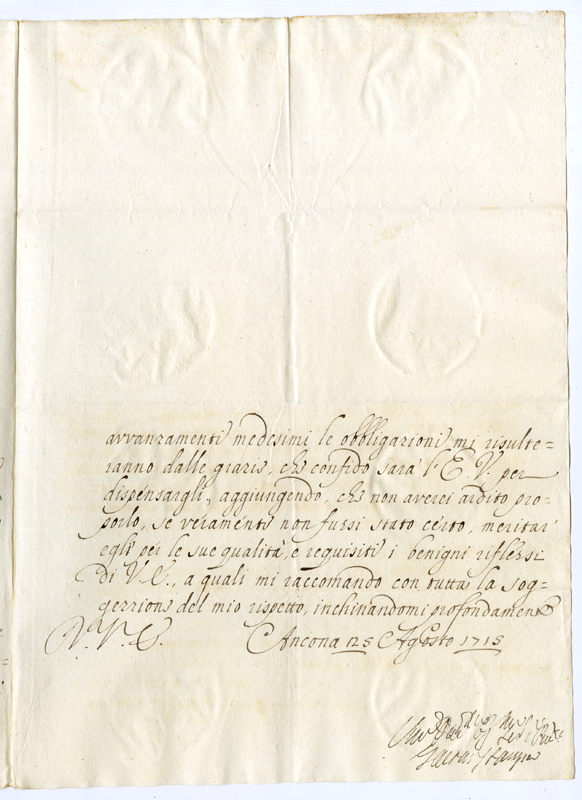 avvanzamenti medesimi le obbligazioni mi risulte=
ranno dalle grazie, che confido sarà l'E. V. per
dispensargli, aggiungendo, che non averei ardito pro=
porlo, se veramente non fussi stato certo, meritar
egli per le sue qualità, e requisiti i benigni riflessi
di V. E., a quali mi raccomando con tutta la sog=
gezzione del mio rispetto, inchinandomi profondamente
D. V. E. Ancona 25 Agosto 1715